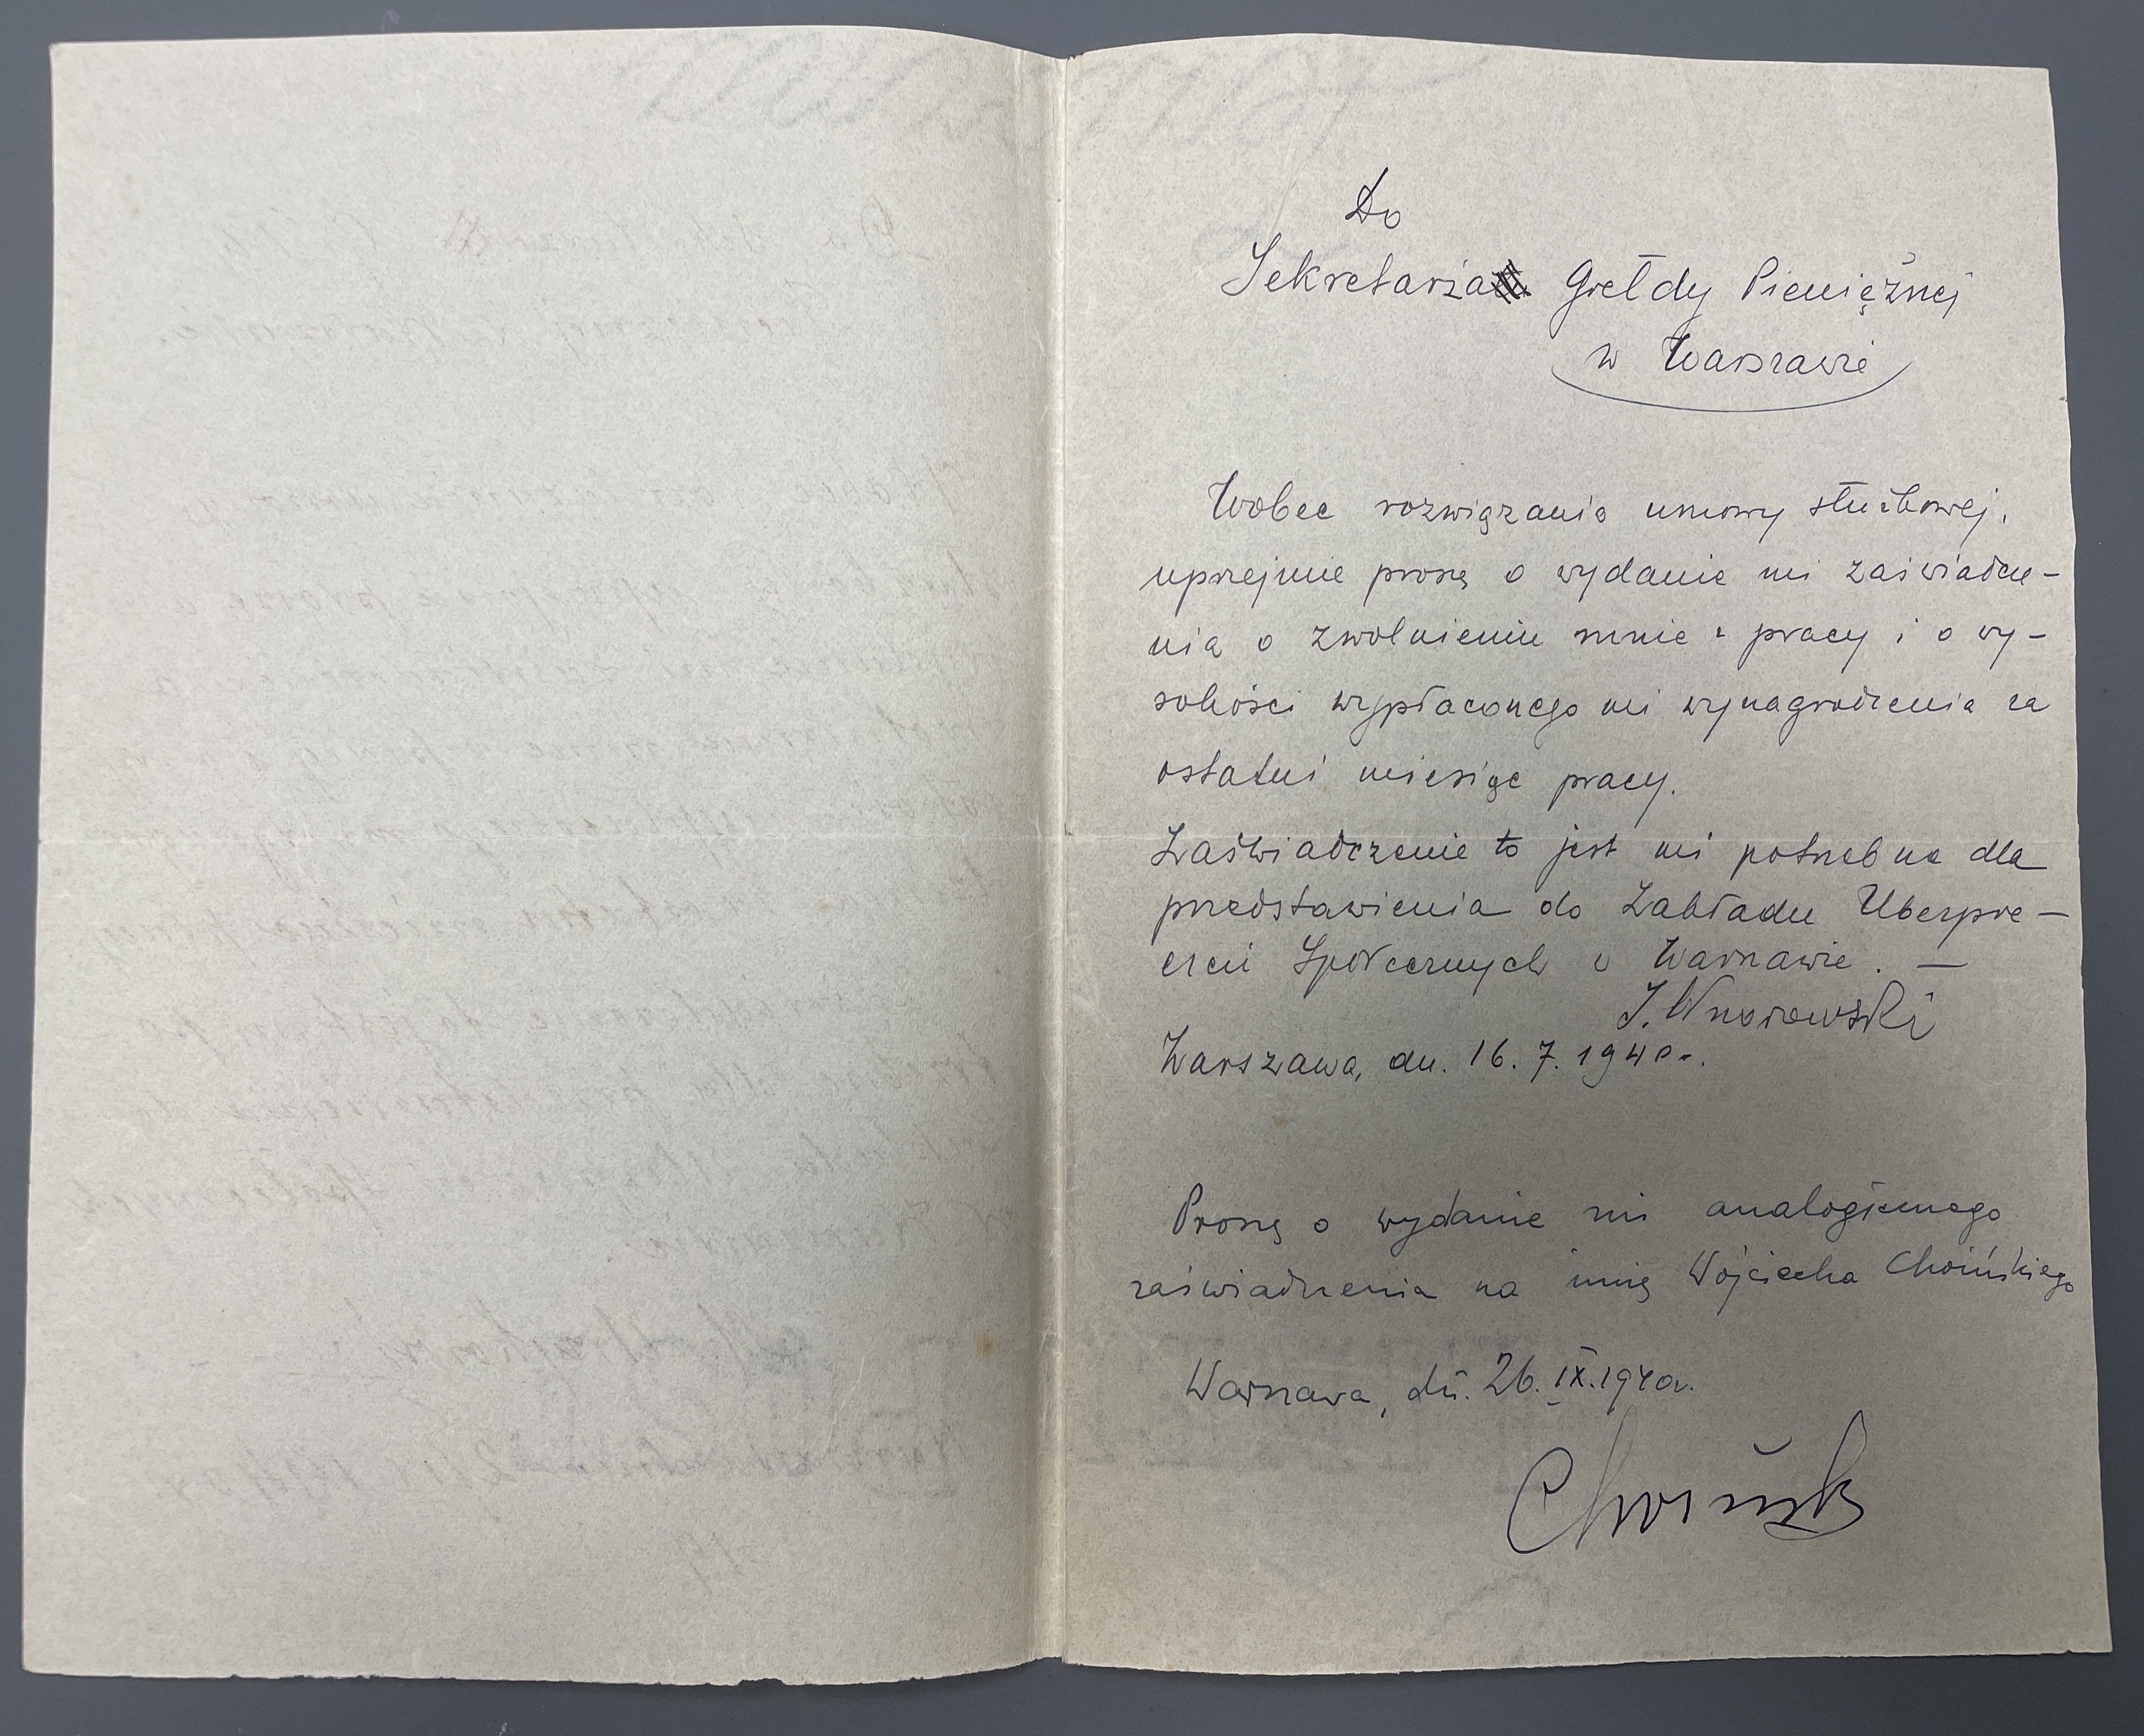 Do
Sekretaria Giełdy Pieniężnej
w Warszawie
Wobec rozwiązania umowy służbowej,
uprzejmie proszę o wydanie mi zaświadcze-
nia o zwolnieniu mnie z pracy i o wy-
sokości wypłaconego mi wynagrodzenia za
ostatni miesiąc pracy.
Zaświadczenie to jest mi potrzebne dla
przedstawienia do Zakładu Ubezpie-
czeń Społecznych w Warszawie. —
J. Wnorowski
Warszawa, dn. 16. 7. 1940 r.
Proszę o wydanie mi analogicznego
zaświadczenia na imię Wojciecha Choińskiego
Warszawa, dń. 26. IX. 1940 r.
Choiński